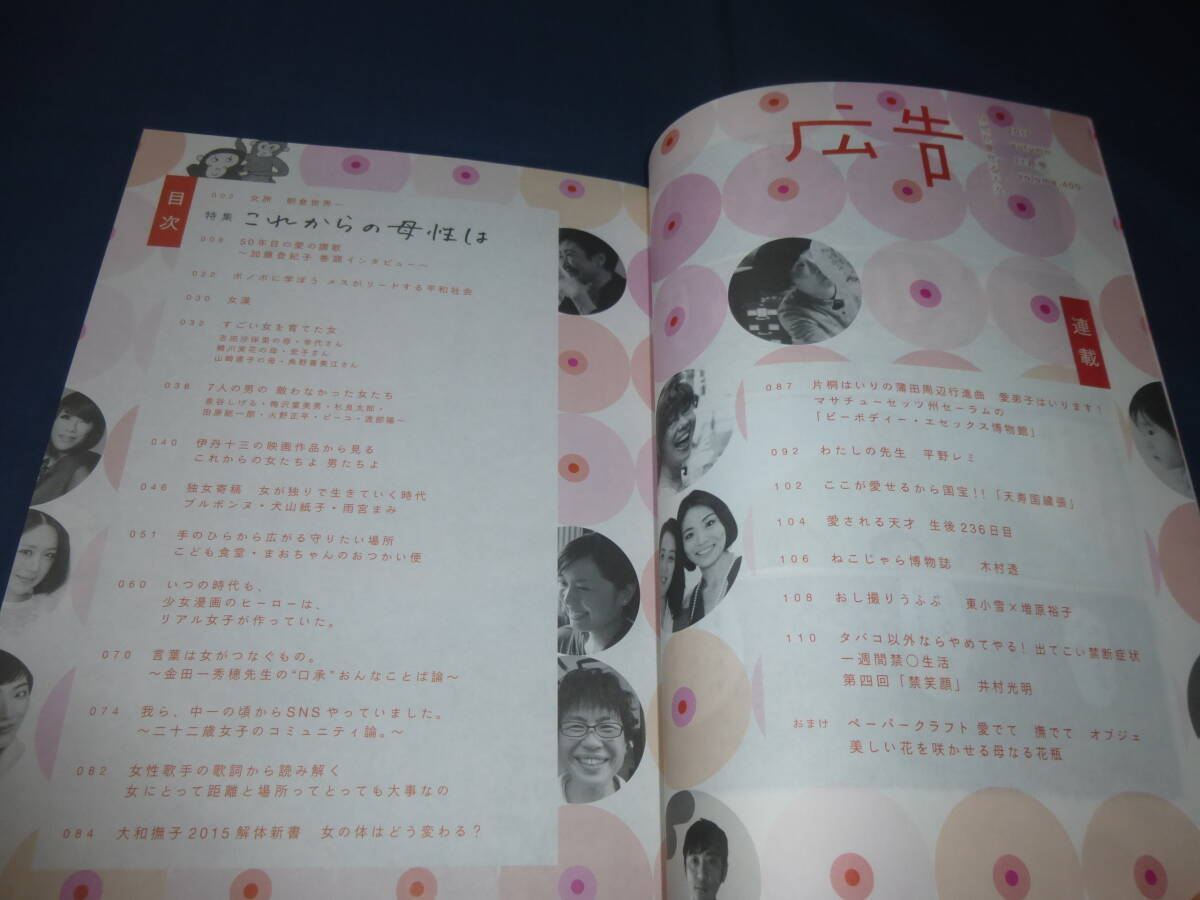 目次
002 女旅 朝倉世界一
特集 これからの母性は
008 50年目の愛の讃歌
〜加藤登紀子 巻頭インタビュー〜
022 ボノボに学ぼう メスがリードする平和社会
030 女道
032 すごい女を育てた女
吉田沙保里の母・幸代さん
蜷川実花の母・宏子さん
山崎直子の母・角野喜美江さん
038 7人の男の 敵わなかった女たち
泉谷しげる・梅沢富美男・杉良太郎・
田原総一朗・火野正平・ピーコ・渡部陽一
040 伊丹十三の映画作品から見る
これからの女たちよ 男たちよ
046 独女寄稿 女が独りで生きていく時代
ブルボンヌ・犬山紙子・雨宮まみ
051 手のひらから広がる守りたい場所
こども食堂・まおちゃんのおつかい便
060 いつの時代も、
少女漫画のヒーローは、
リアル女子が作っていた。
070 言葉は女がつなぐもの。
〜金田一秀穂先生の“口承”おんなことば論〜
074 我ら、中一の頃からSNSやっていました。
〜二十二歳女子のコミュニティ論。〜
082 女性歌手の歌詞から読み解く
女にとって距離と場所ってとっても大事なの
084 大和撫子2015解体新書 女の体はどう変わる？
広告
volume.405
連載
087 片桐はいりの蒲田周辺行進曲 愛弟子はいります！
マサチューセッツ州セーラムの
「ピーボディー・エセックス博物館」
092 わたしの先生 平野レミ
102 ここが愛せるから国宝!!「天寿国繡帳」
104 愛される天才 生後236日目
106 ねこじゃら博物誌 木村透
108 おし撮りうふふ 東小雪×増原裕子
110 タバコ以外ならやめてやる！出てこい禁断症状
一週間禁〇生活
第四回「禁笑顔」 井村光明
おまけ ペーパークラフト 愛でて 撫でて オブジェ
美しい花を咲かせる母なる花瓶